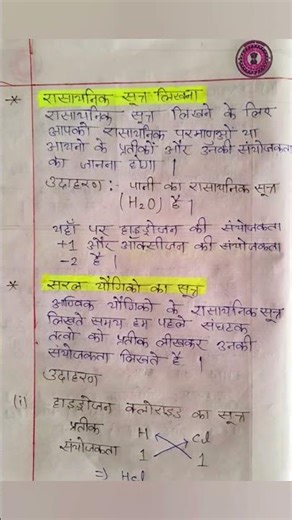 * रासायनिक सूत्र लिखना
रासायनिक सूत्र लिखने के लिए
आपको रासायनिक परमाणुओं या
आयनो के प्रतीकों और उनकी संयोजकता
का जानना होगा |
उदाहरण :- पानी का रासायनिक सूत्र
(H2O) है |
यहाँ पर हाइड्रोजन की संयोजकता
+1 और ऑक्सीजन की संयोजकता
-2 है |
* सरल यौगिको का सूत्र
आण्विक यौगिकों के रासायनिक सूत्र
लिखते समय हम पहले संघटक
तत्वो को प्रतीक लीखकर उनकी
संयोजकता लिखते हैं |
उदाहरण
(i) हाइड्रोजन क्लोराइड का सूत्र
प्रतीक H Cl
संयोजकता 1 1
⇒ Hcl